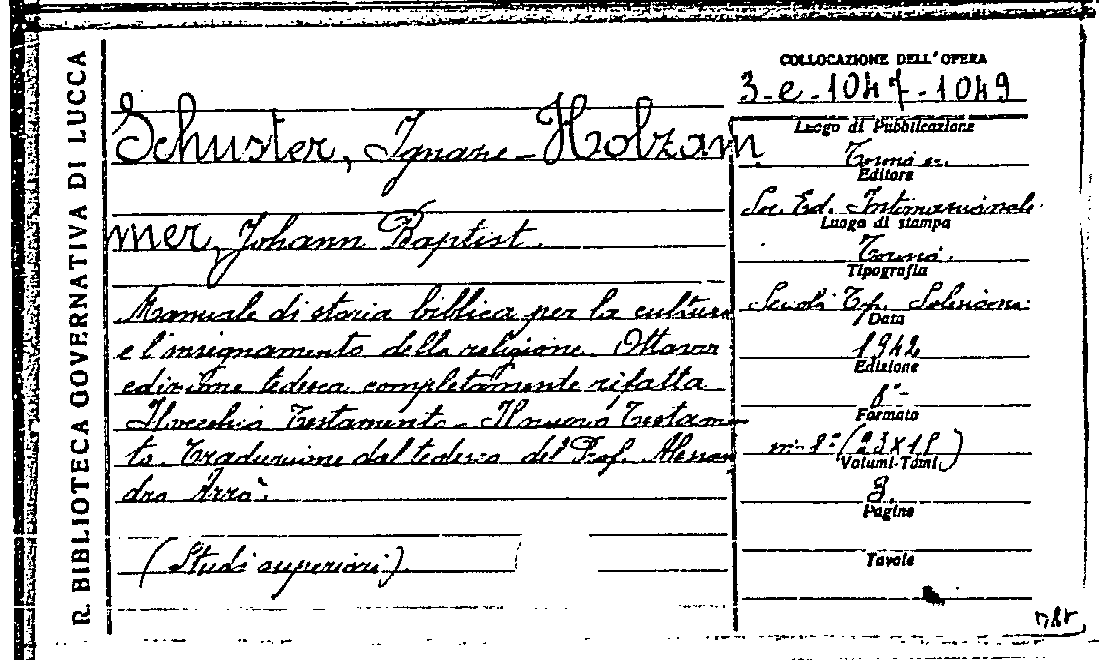 R. BIBLIOTECA GOVERNATIVA DI LUCCA
Schuster, Ignaze - Holzam
mer, Johann Baptist.
Manuale di storia biblica per la cultura
e l'insegnamento della religione. Ottava
edizione tedesca completamente rifatta
Il vecchio Testamento - Il nuovo Testamen
to. Traduzione dal tedesco del Prof. Alessan
dro Arrò.
(Studi superiori).
COLLOCAZIONE DELL'OPERA
3-e-1047-1049
Luogo di Pubblicazione
Torino
Editore
Soc. Ed. Internazionale
Luogo di stampa
Torino.
Tipografia
Scuola Tip. Salesiana
Data
1942
Edizione
8ª
Formato
in-8° (23x18)
Volumi-Tomi
3.
Pagine
Tavole